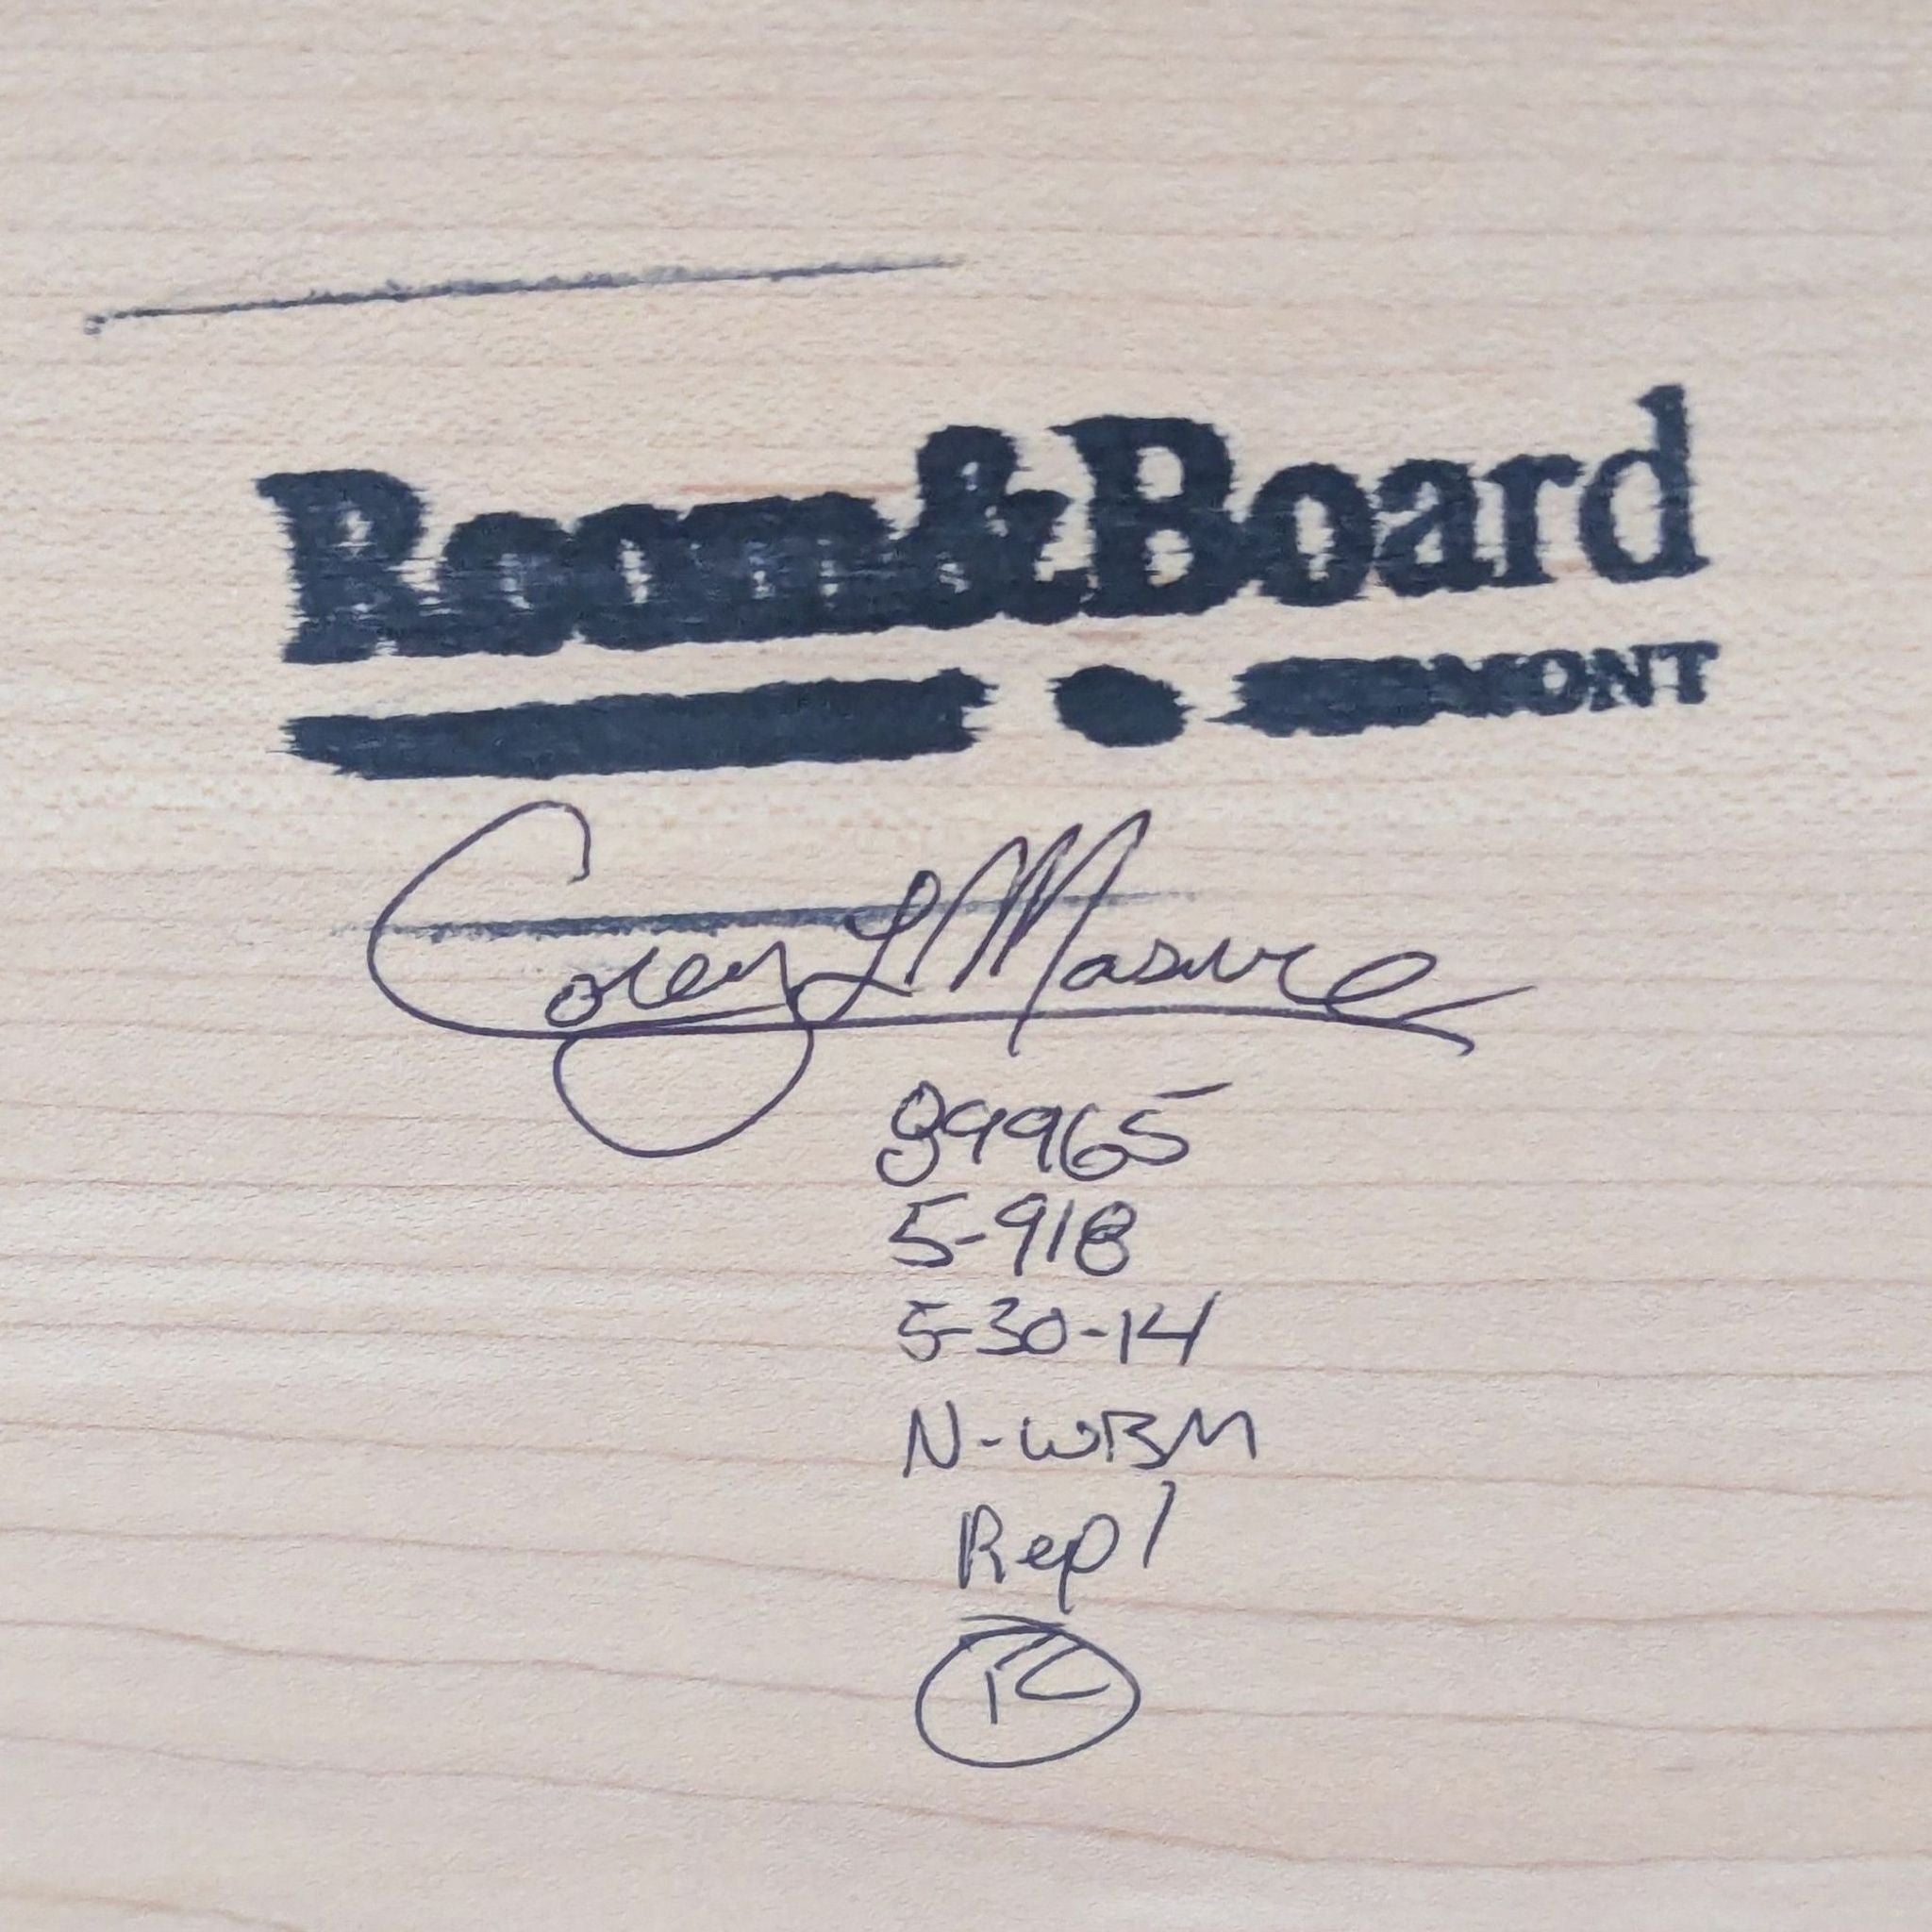 Room&Board
VERMONT
Corey L Masure
89965
5-918
5-30-14
N-WBM
Repl